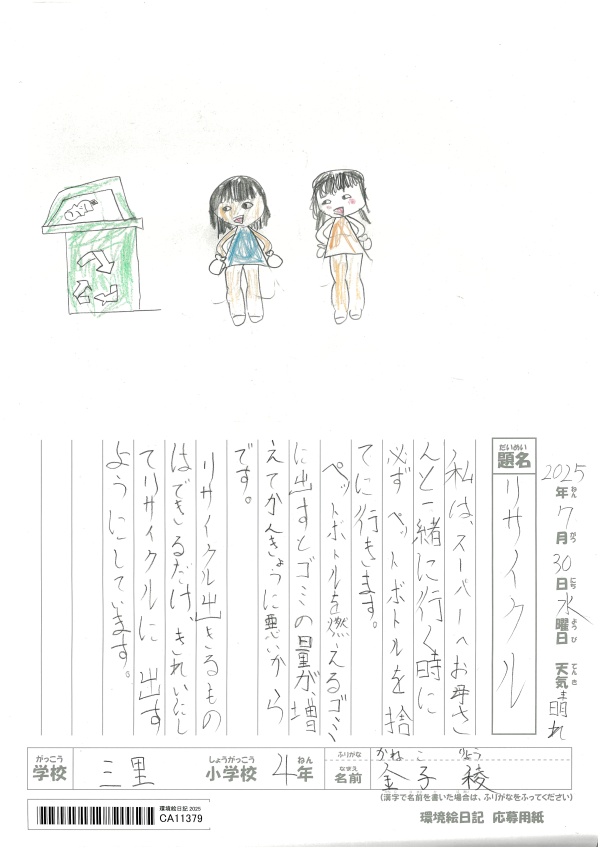 2025年7月30日水曜日 天気晴れ
ねん がつ にち ようび てんき
だいめい
題名 リサイクル
私は、スーパーへお母さ
んと一緒に行く時に
必ずペットボトルを捨
てに行きます。
ペットボトルを燃えるゴミ
に出すとゴミの量が、増
えてかんきょうに悪いから
です。
リサイクル出きるもの
はできるだけ、きれいにし
てリサイクルに出す
ようにしています。
がっこう しょうがっこう ねん
学校 三里 小学校 4年
ふりがな かねこ りょう
なまえ
名前 金子 稜
(漢字で名前を書いた場合は、ふりがなをふってください)
環境絵日記 2025
CA11379
環境絵日記 応募用紙